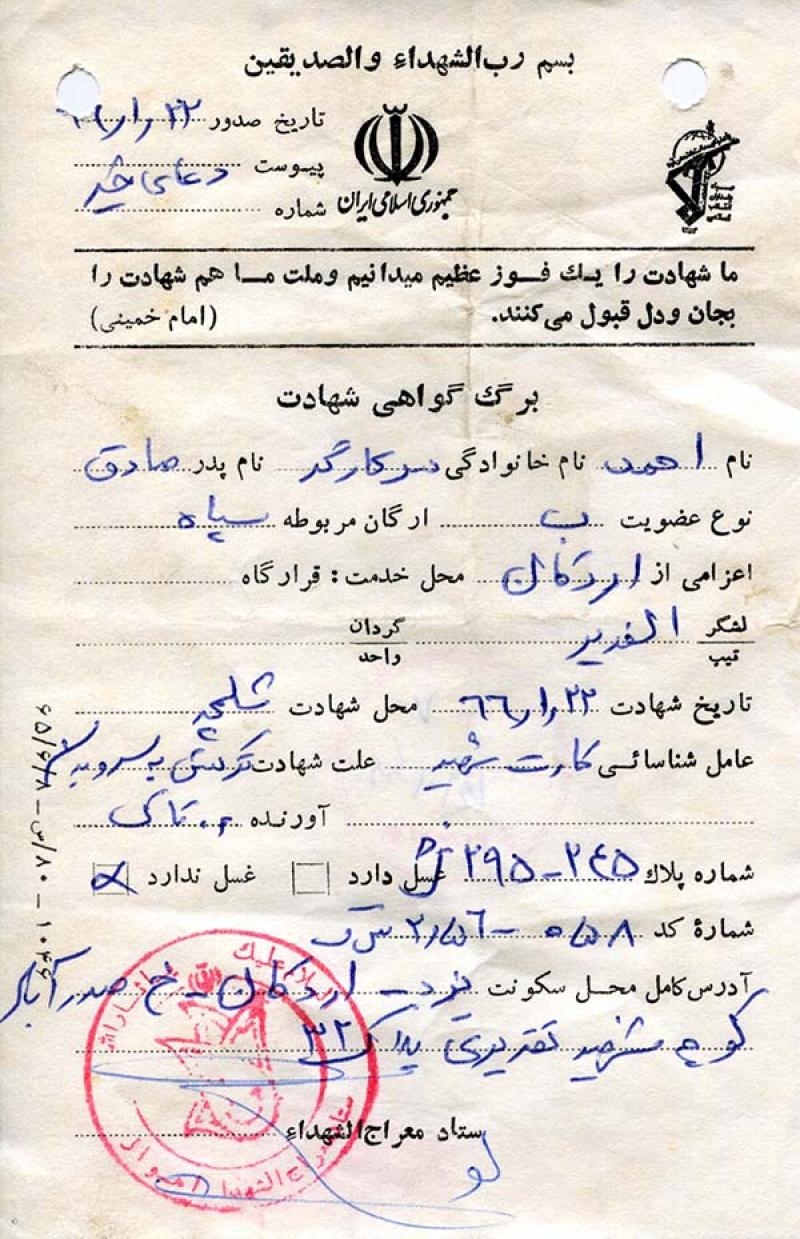 بسم رب الشهداء والصدیقین
تاریخ صدور ۲۲ ر۱ر۶۶
پیوست دعای خیر
شماره
جمهوری اسلامی ایران
ما شهادت را یك فوز عظیم میدانیم وملت ما هم شهادت را
بجان ودل قبول می‌کنند. (امام خمینی)
برگ گواهی شهادت
نام احمد نام خانوادگی سرکارگر نام پدر صادق
نوع عضویت ب ارگان مربوطه سپاه
اعزامی از اردکان محل خدمت: قرارگاه
لشگر الغدیر گردان
تیپ واحد
تاریخ شهادت ۲۲ر۱ر۶۶ محل شهادت شلمچه
عامل شناسائی کارت شهید علت شهادت ترکش به سر و
آورنده
شماره پلاك ۲۴۵-۲۹۵ غسل دارد غسل ندارد
شمارهٔ کد
آدرس کامل محل سکونت یزد - اردکان - خ صدرآباد
کوچه شهید تقدیری پلاک ۳۲
ستاد معراج الشهداء
۶۵/۶/۲۸ - س/۸۰ - ۱۰۴۶
السلام علیک یا ثارالله
ستاد معراج الشهداء اهواز